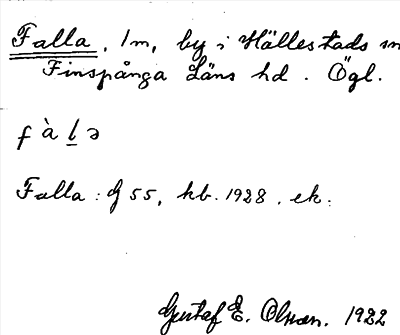 Falla, 1m, by i Hällestads sn
Finspånga Läns hd. Ögl.
f à l ə
Falla: G 55, kb. 1928. ek.
Gustaf E. Olsson. 1922